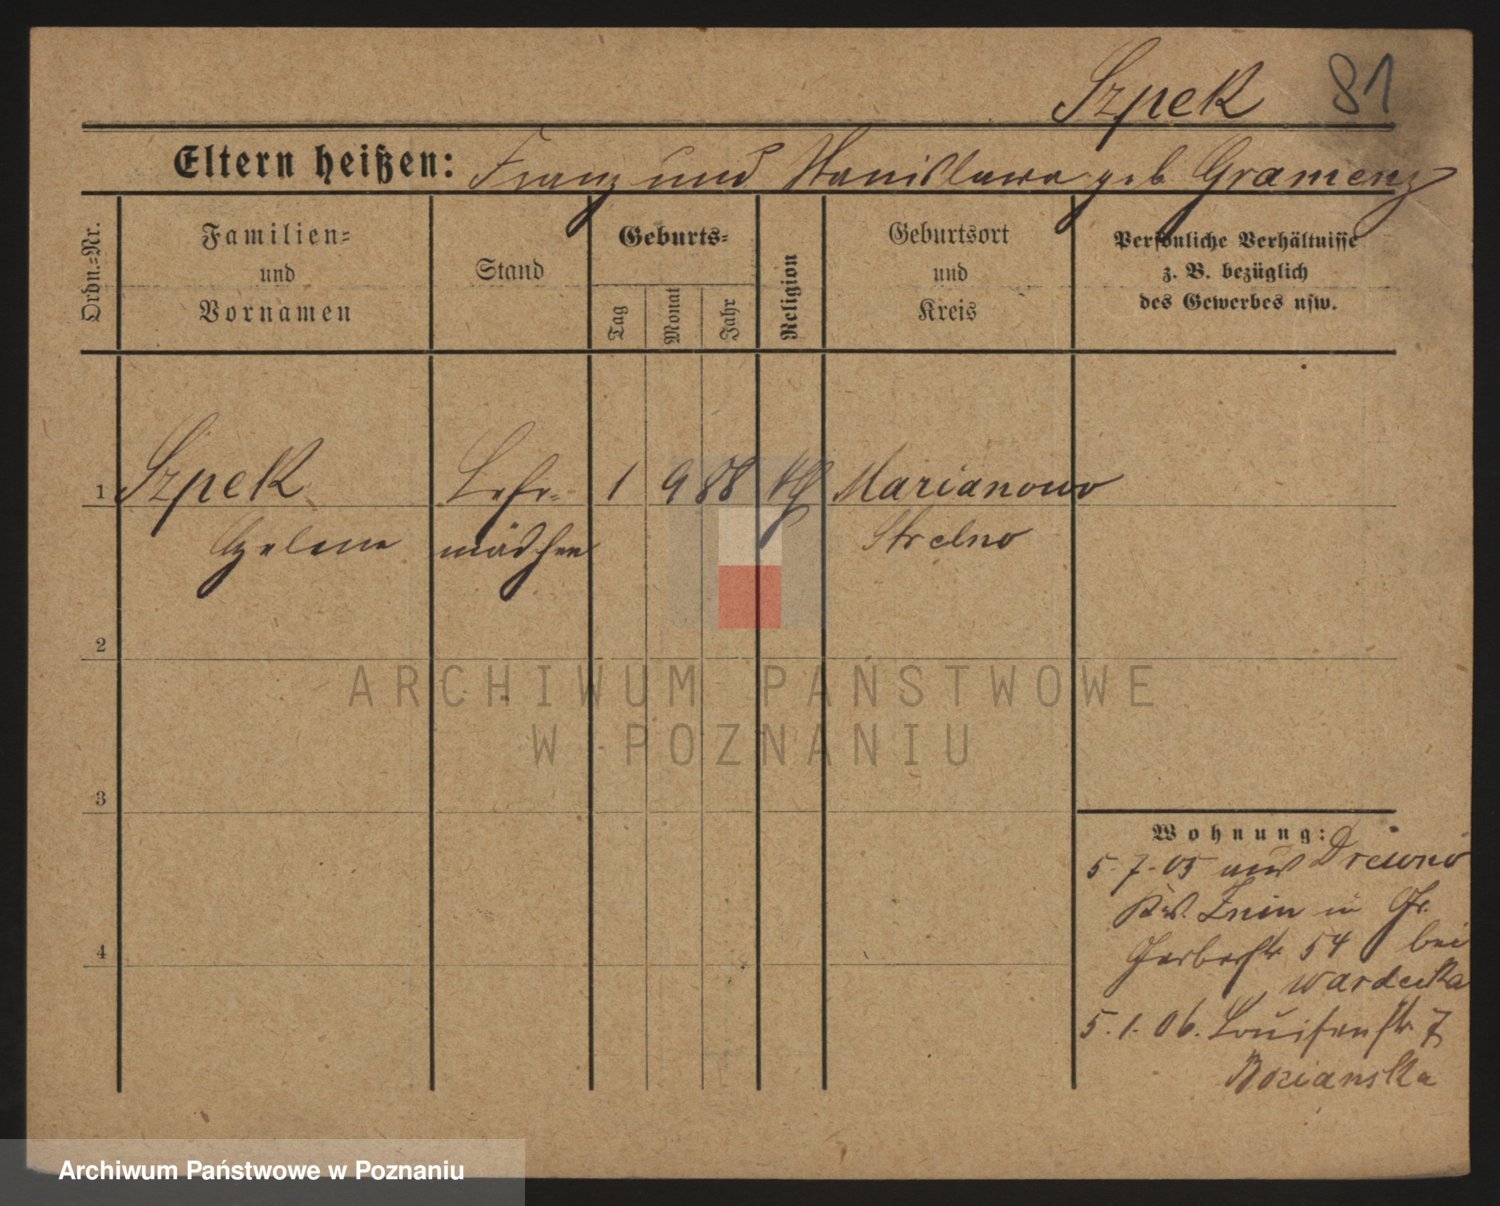 Szpek 81
Eltern heißen: Franz und Stanislawa geb Gramenz
Ordn.=Nr.
Familien=
und
Vornamen
Stand
Geburts=
Tag
Monat
Jahr
Religion
Geburtsort
und
Kreis
Persönliche Verhältnisse
z. B. bezüglich
des Gewerbes usw.
1 Szpek Lehr= 1 9 88 kth Marianowo
Helene mädchen Strelno
2
3
4
Wohnung:
5.7.05 aus Drewno
Krs. Znin in Gr.
Gerberstr 54 bei
Wardecka
5.1.06. Louisenstr 7
Bozianska
ARCHIWUM PAŃSTWOWE
W POZNANIU
Archiwum Państwowe w Poznaniu